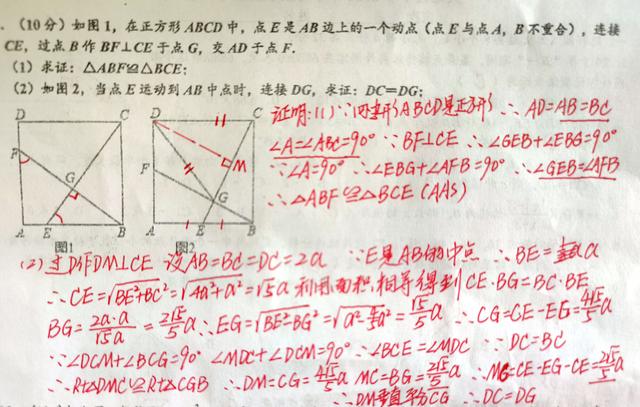 . (10分) 如图1，在正方形ABCD中，点E是AB边上的一个动点（点E与点A，B不重合），连接
CE，过点B作BF⊥CE于点G，交AD于点F.
(1) 求证：△ABF≌△BCE；
(2) 如图2，当点E运动到AB中点时，连接DG，求证：DC=DG；
D C F G A E B
图1
D C M F G A E B
图2
证明:(1)∵四边形ABCD是正方形 ∴AD=AB=BC
∠A=∠ABC=90° ∵BF⊥CE ∴∠GEB+∠EBG=90°
∵∠A=90° ∴∠EBG+∠AFB=90° ∴∠GEB=∠AFB
∴△ABF≌△BCE (AAS)
(2)过D作DM⊥CE 设AB=BC=DC=2a ∵E是AB的中点 ∴BE=a
∴CE=√BE²+BC²=√4a²+a²=√5a 利用面积相等得到CE·BG=BC·BE
BG=2a·a/√5a=2√5/5a ∴EG=√BE²-BG²=√a²-4/5a²=√5/5a ∴CG=CE-EG=4√5/5a
∵∠DCM+∠BCG=90° ∠MDC+∠DCM=90° ∴∠BCE=∠MDC ∵DC=BC
∴Rt△DMC≌Rt△CGB ∴DM=CG=4√5/5a MC=BG=2√5/5a ∴MG=CE-EG-CE=2√5/5a
∴DM垂直平分CG ∴DC=DG